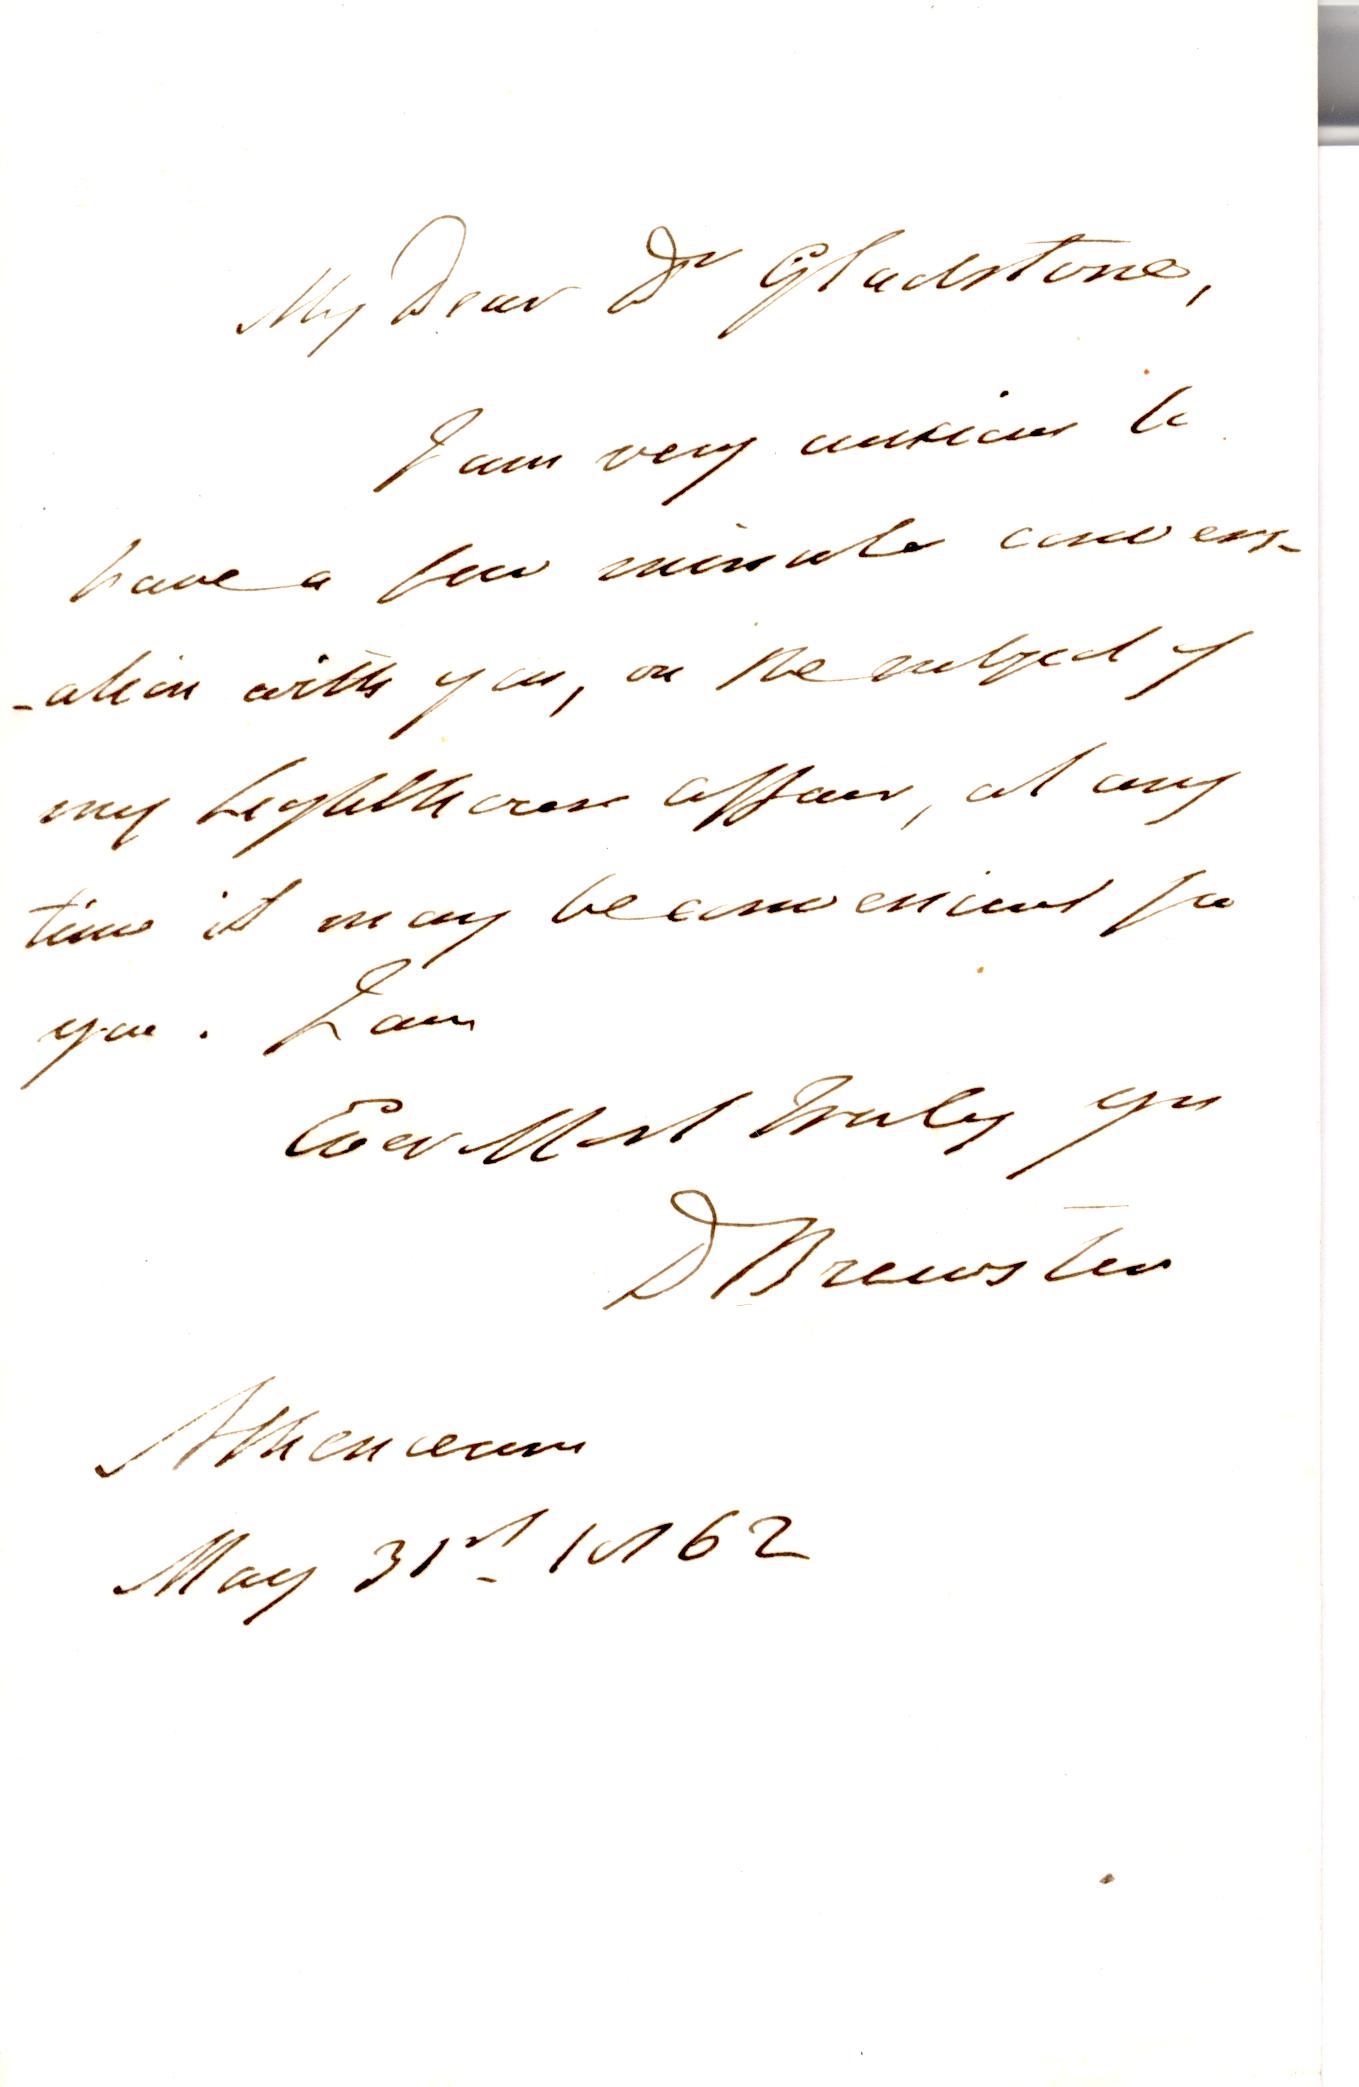 My Dear Dr Gladstone,
I am very anxious to
have a few minutes convers-
-ation with you, on the subject of
my Lighthouse affair, at any
time it may be convenient for
you. I am
Ever Most Truly yrs
D Brewster
Athenaeum
May 31st 1862